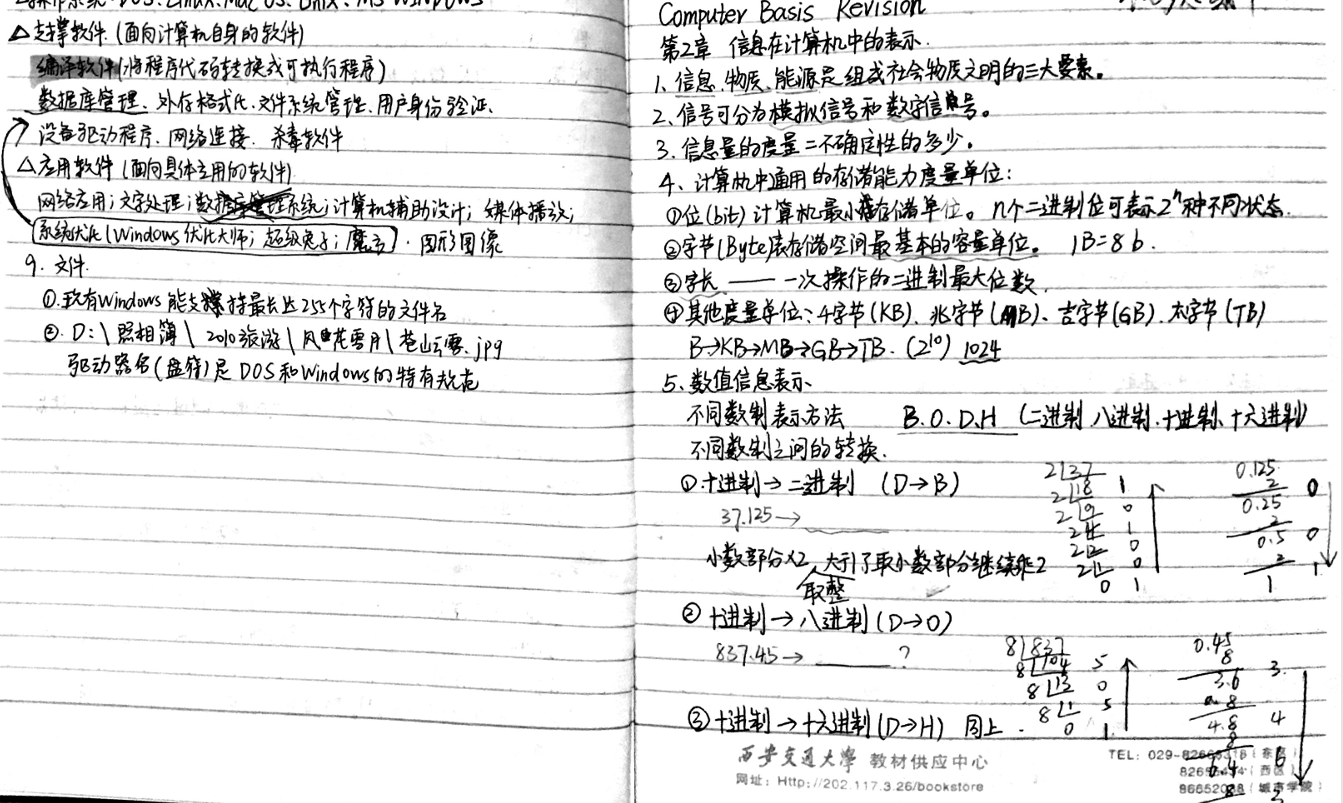 操作系统: DOS、Linux、Mac OS、Unix、MS Windows
△支撑软件 (面向计算机自身的软件)
编译软件(将程序代码转换成可执行程序)
数据库管理、外存格式化、文件系统管理、用户身份验证、
设备驱动程序、网络连接、杀毒软件
△应用软件 (面向具体应用的软件)
网络应用; 文字处理; 系统; 计算机辅助设计; 媒体播放;
系统优化(Windows优化大师; 超级兔子; 魔方). 图形图像
9. 文件.
①.致有Windows能支撑持最长达255个字符的文件名
②. D:\照相簿\2010旅游\风花雪月\苍山云雾.jpg
驱动器名(盘符)是DOS和Windows的特有规范
Computer Basis Revision
第2章 信息在计算机中的表示.
1. 信息、物质、能源是组成社会物质文明的三大要素。
2. 信号可分为模拟信号和数字信号。
3. 信息量的度量=不确定性的多少。
4. 计算机中通用的存储能力度量单位:
①位(bit) 计算机最小存储单位。 n个二进制位可表示2ⁿ种不同状态.
②字节(Byte)表存储空间最基本的容量单位。 1B=8b.
③字长 —— 一次操作的二进制最大位数.
④其他度量单位: 千字节(KB)、兆字节(MB)、吉字节(GB)、太字节(TB)
B→KB→MB→GB→TB. (2¹⁰) 1024
5. 数值信息表示.
不同数制表示方法 B.O.D.H (二进制、八进制、十进制、十六进制)
不同数制之间的转换.
①.十进制→二进制 (D→B)
37.125→
小数部分×2, 大于1了取小数部分继续乘2
取整
2 37
2 18 1
2 9 0
2 4 1
2 2 0
2 1 0
0 1
0.125
2 0
0.25
2 0
0.5
2
1 1
② 十进制→八进制 (D→O)
837.45→ ?
8 837
8 104 5
8 13 0
8 1 5
0 1
0.45
8 3
3.6
8
4.8 4
8
6.4 6
8
3
③十进制→十六进制(D→H) 同上.
西安交通大学 教材供应中心
网址: Http://202.117.3.26/bookstore
TEL: 029-82668318 (东区)
(西区)
(城市学院)